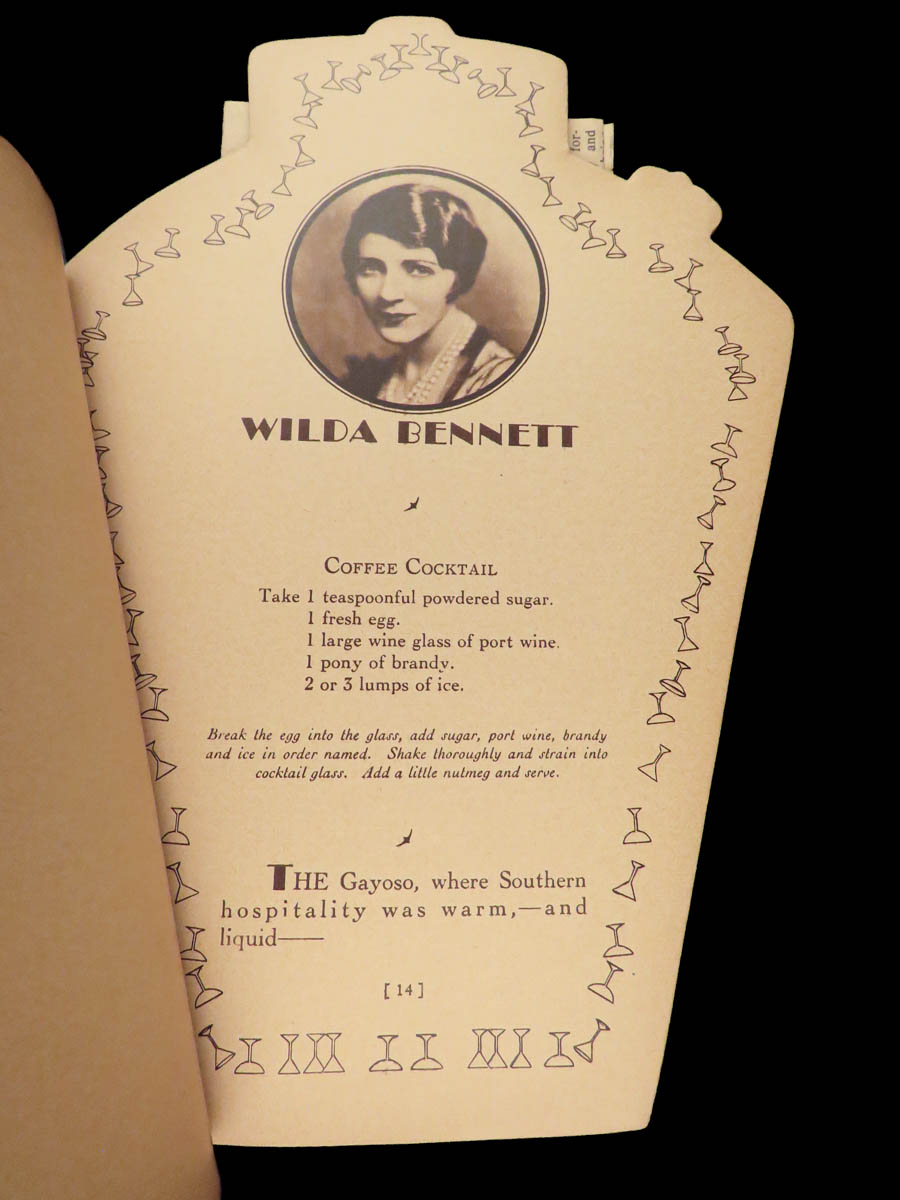 for-
and
WILDA BENNETT
COFFEE COCKTAIL
Take 1 teaspoonful powdered sugar.
1 fresh egg.
1 large wine glass of port wine.
1 pony of brandy.
2 or 3 lumps of ice.
Break the egg into the glass, add sugar, port wine, brandy
and ice in order named. Shake thoroughly and strain into
cocktail glass. Add a little nutmeg and serve.
THE Gayoso, where Southern
hospitality was warm,—and
liquid——
[ 14 ]